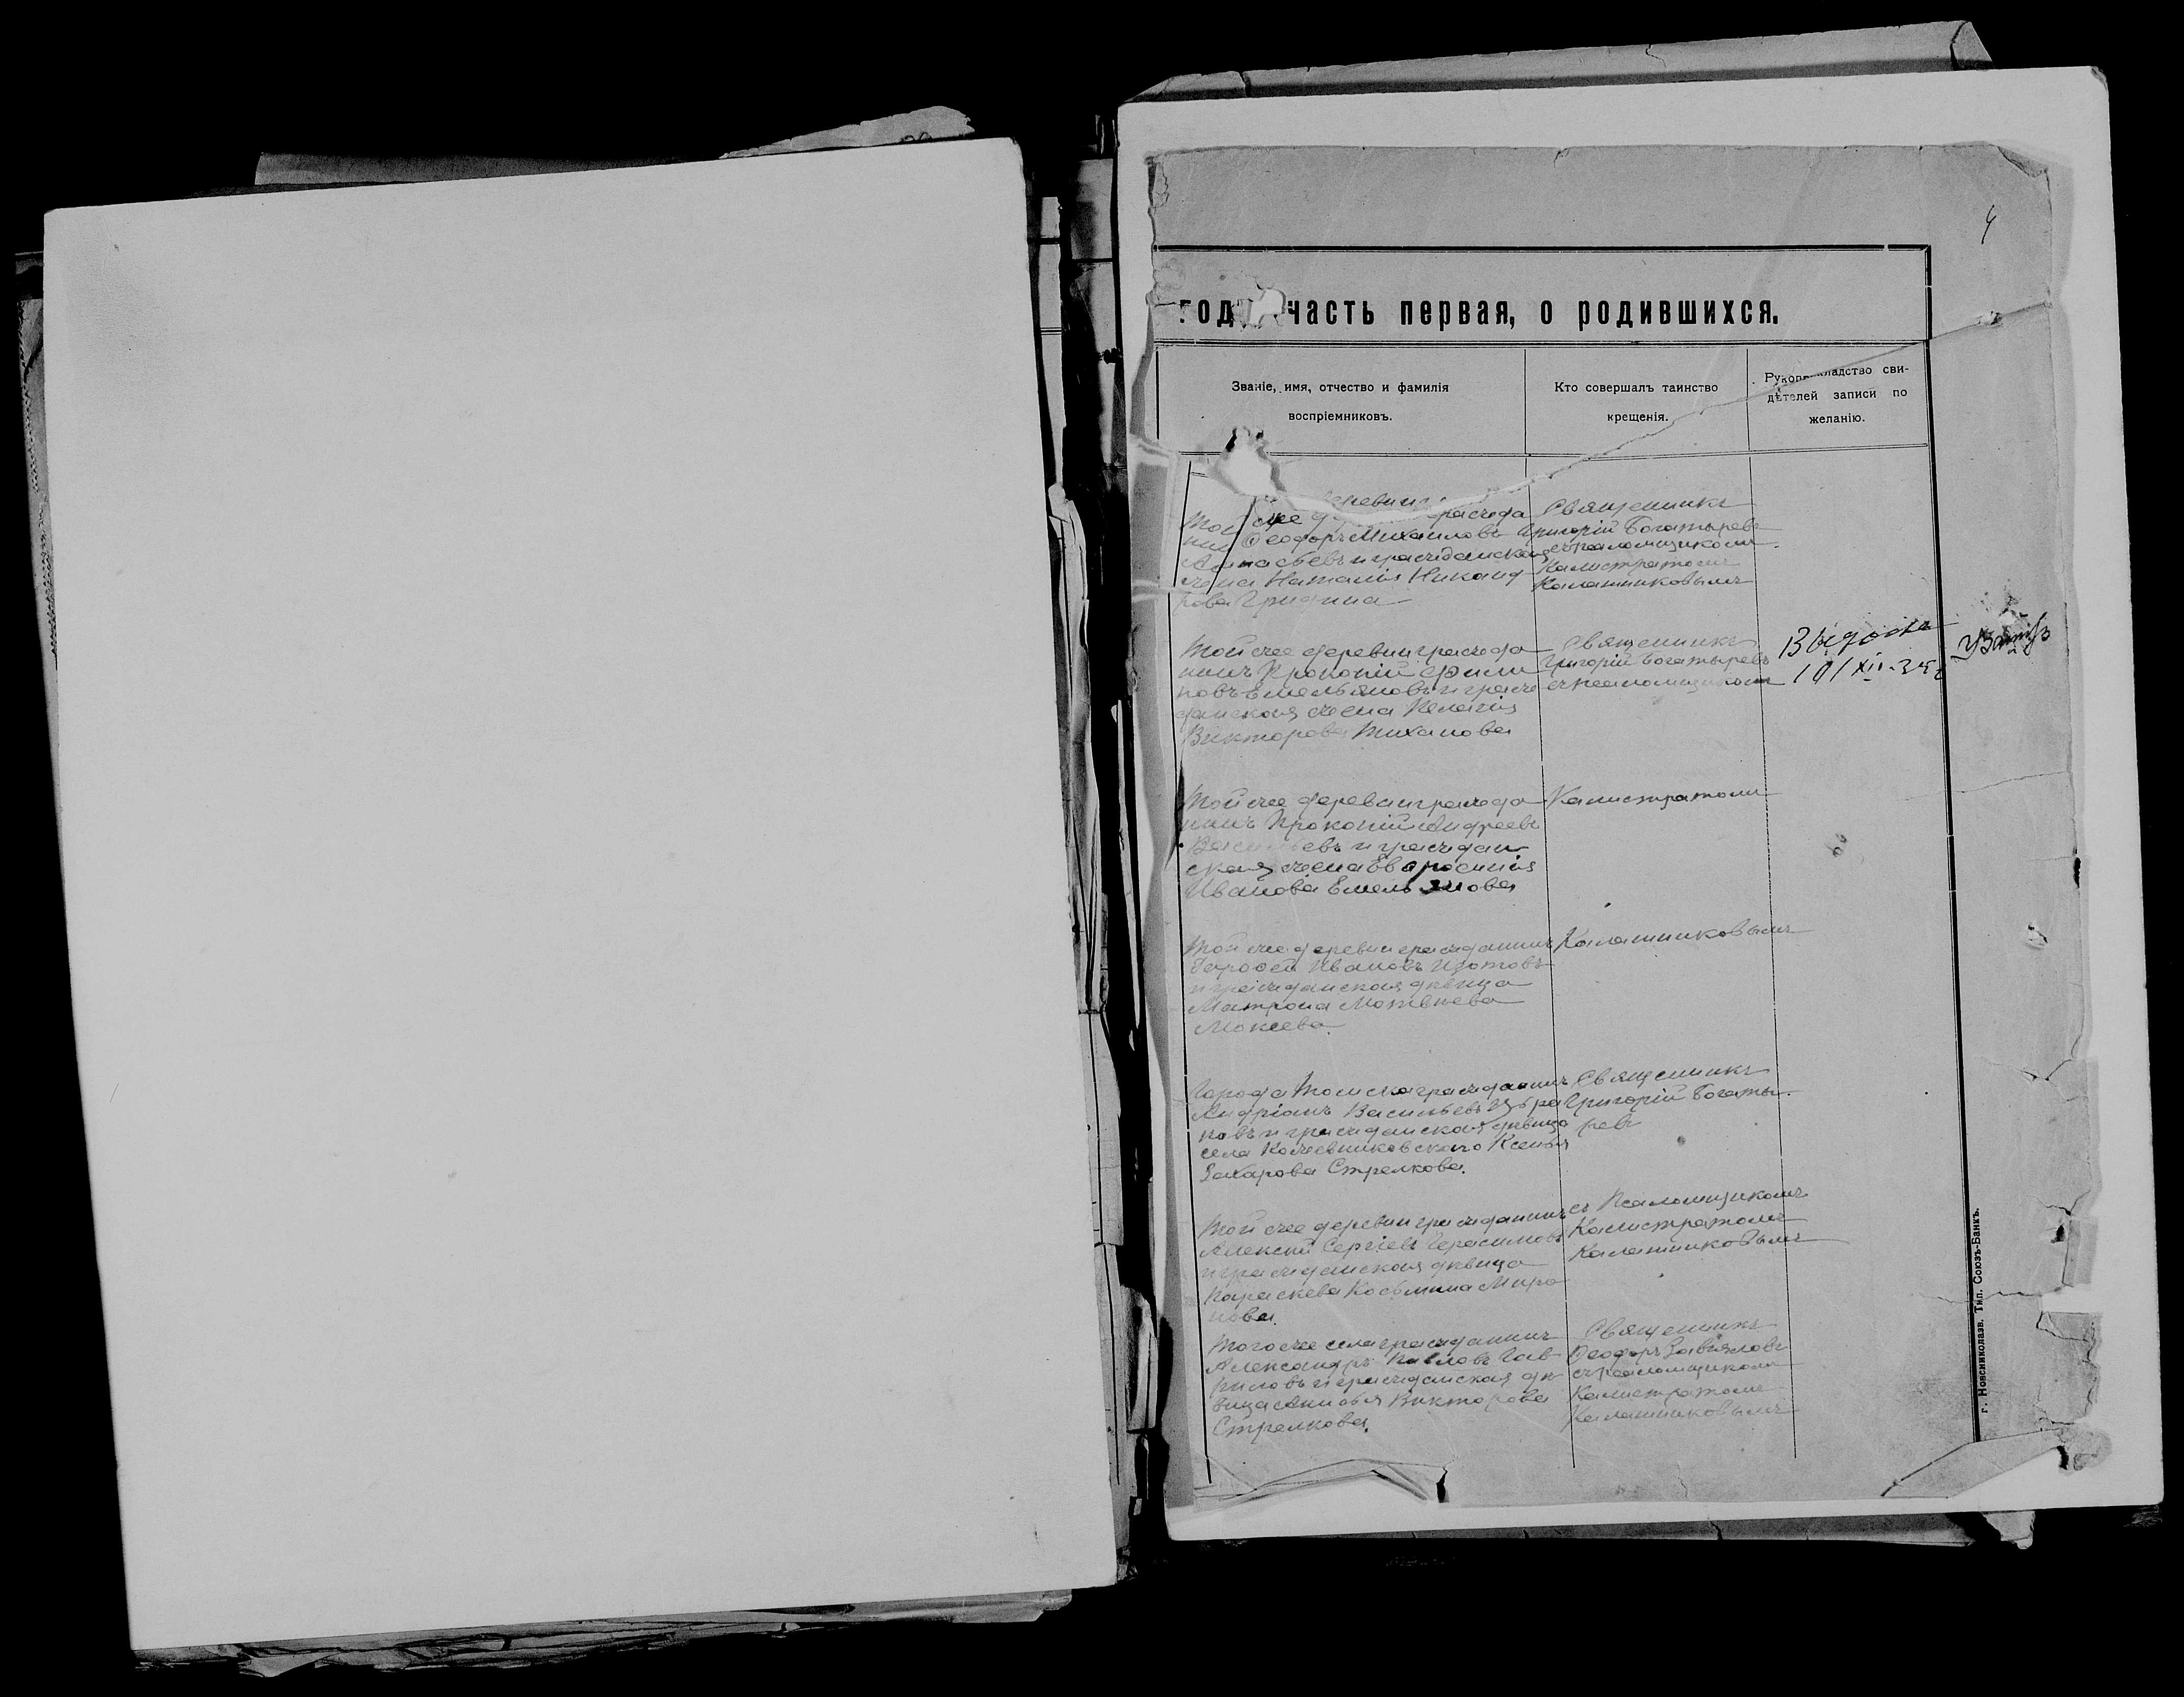 4
часть первая, о родившихся.
Званіе, имя, отчество и фамилія
воспріемниковъ.
Кто совершалъ таинство
крещенія.
свидѣтелей записи по
желанію.
Священникъ
Ѳеодоръ Михаиловъ
Григорій Богатыревъ
съ псаломщикомъ
Калистратомъ
жена Наталія Никанд
Калашниковымъ
рова
Той же деревни гражда
нинъ Прокопій Фили
повъ Емельяновъ и граж
данская жена Пелагія
Викторова Тиханова
Священникъ
Григорій Богатыревъ
съ псаломщикомъ
Той же деревни гражда
нинъ Прокопій Андреевъ
Васильевъ и граждан
ская жена Евфросинія
Иванова Емельянова
Калистратомъ
Той же деревни гражданинъ
Ивановъ Изотовъ
и гражданская дѣвица
Матрона Матвѣева
Мокеева.
Калашниковымъ
Города Томска гражданинъ
Андріанъ Васильевъ
и гражданская дѣвица
села Кожевниковскаго Ксенія
Захарова Стрелкова.
Священникъ
Григорій Богаты-
ревъ
Той же деревни гражданинъ
Алексій Сергіевъ Герасимовъ
и гражданская дѣвица
Параскева Косьмина Миро
нова.
съ Псаломщикомъ
Калистратомъ
Калашниковымъ
Того же села гражданинъ
Александръ Павловъ Гав
риловъ и гражданская дѣ
вица Викторова
Стрелкова.
Священникъ
Ѳеодоръ Завьяловъ
съ псаломщикомъ
Калистратомъ
Калашниковымъ
г. Новониколаев. Тип. Союзъ-Банкъ.